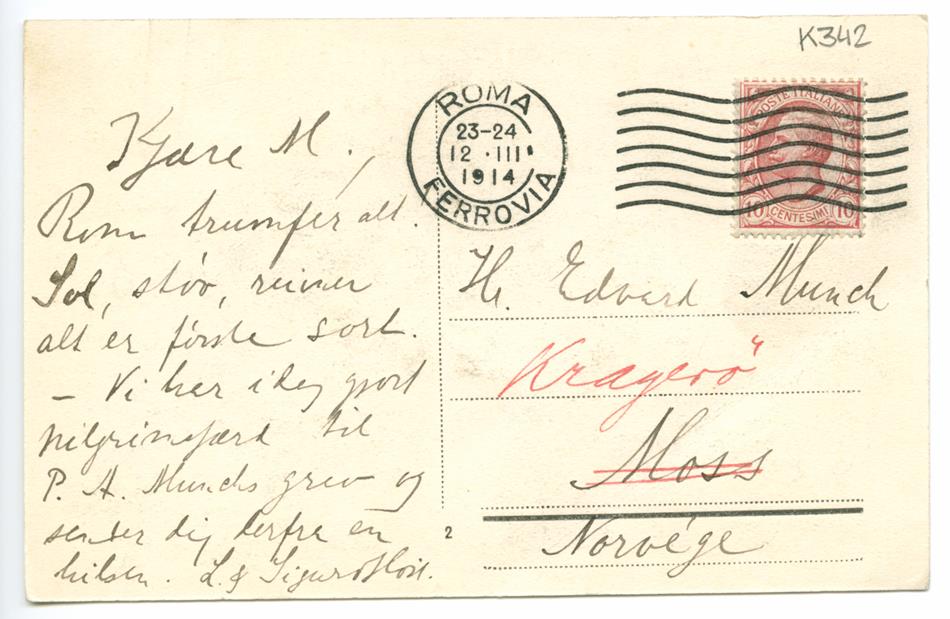 K342
ROMA
23-24
12 · III
1914
FERROVIA
POSTE ITALIANE
10 CENTESIMI 10
Kjære M.,
Rom trumfer alt.
Sol, støv, ruiner
alt er første sort.
– Vi har idag gjort
pilgrimsfærd til
P. A. Munchs grav og
sender dig derfra en
hilsen. L. & Sigurd Høst.
Hr. Edvard Munch
Kragerö
Moss
Norvége
2